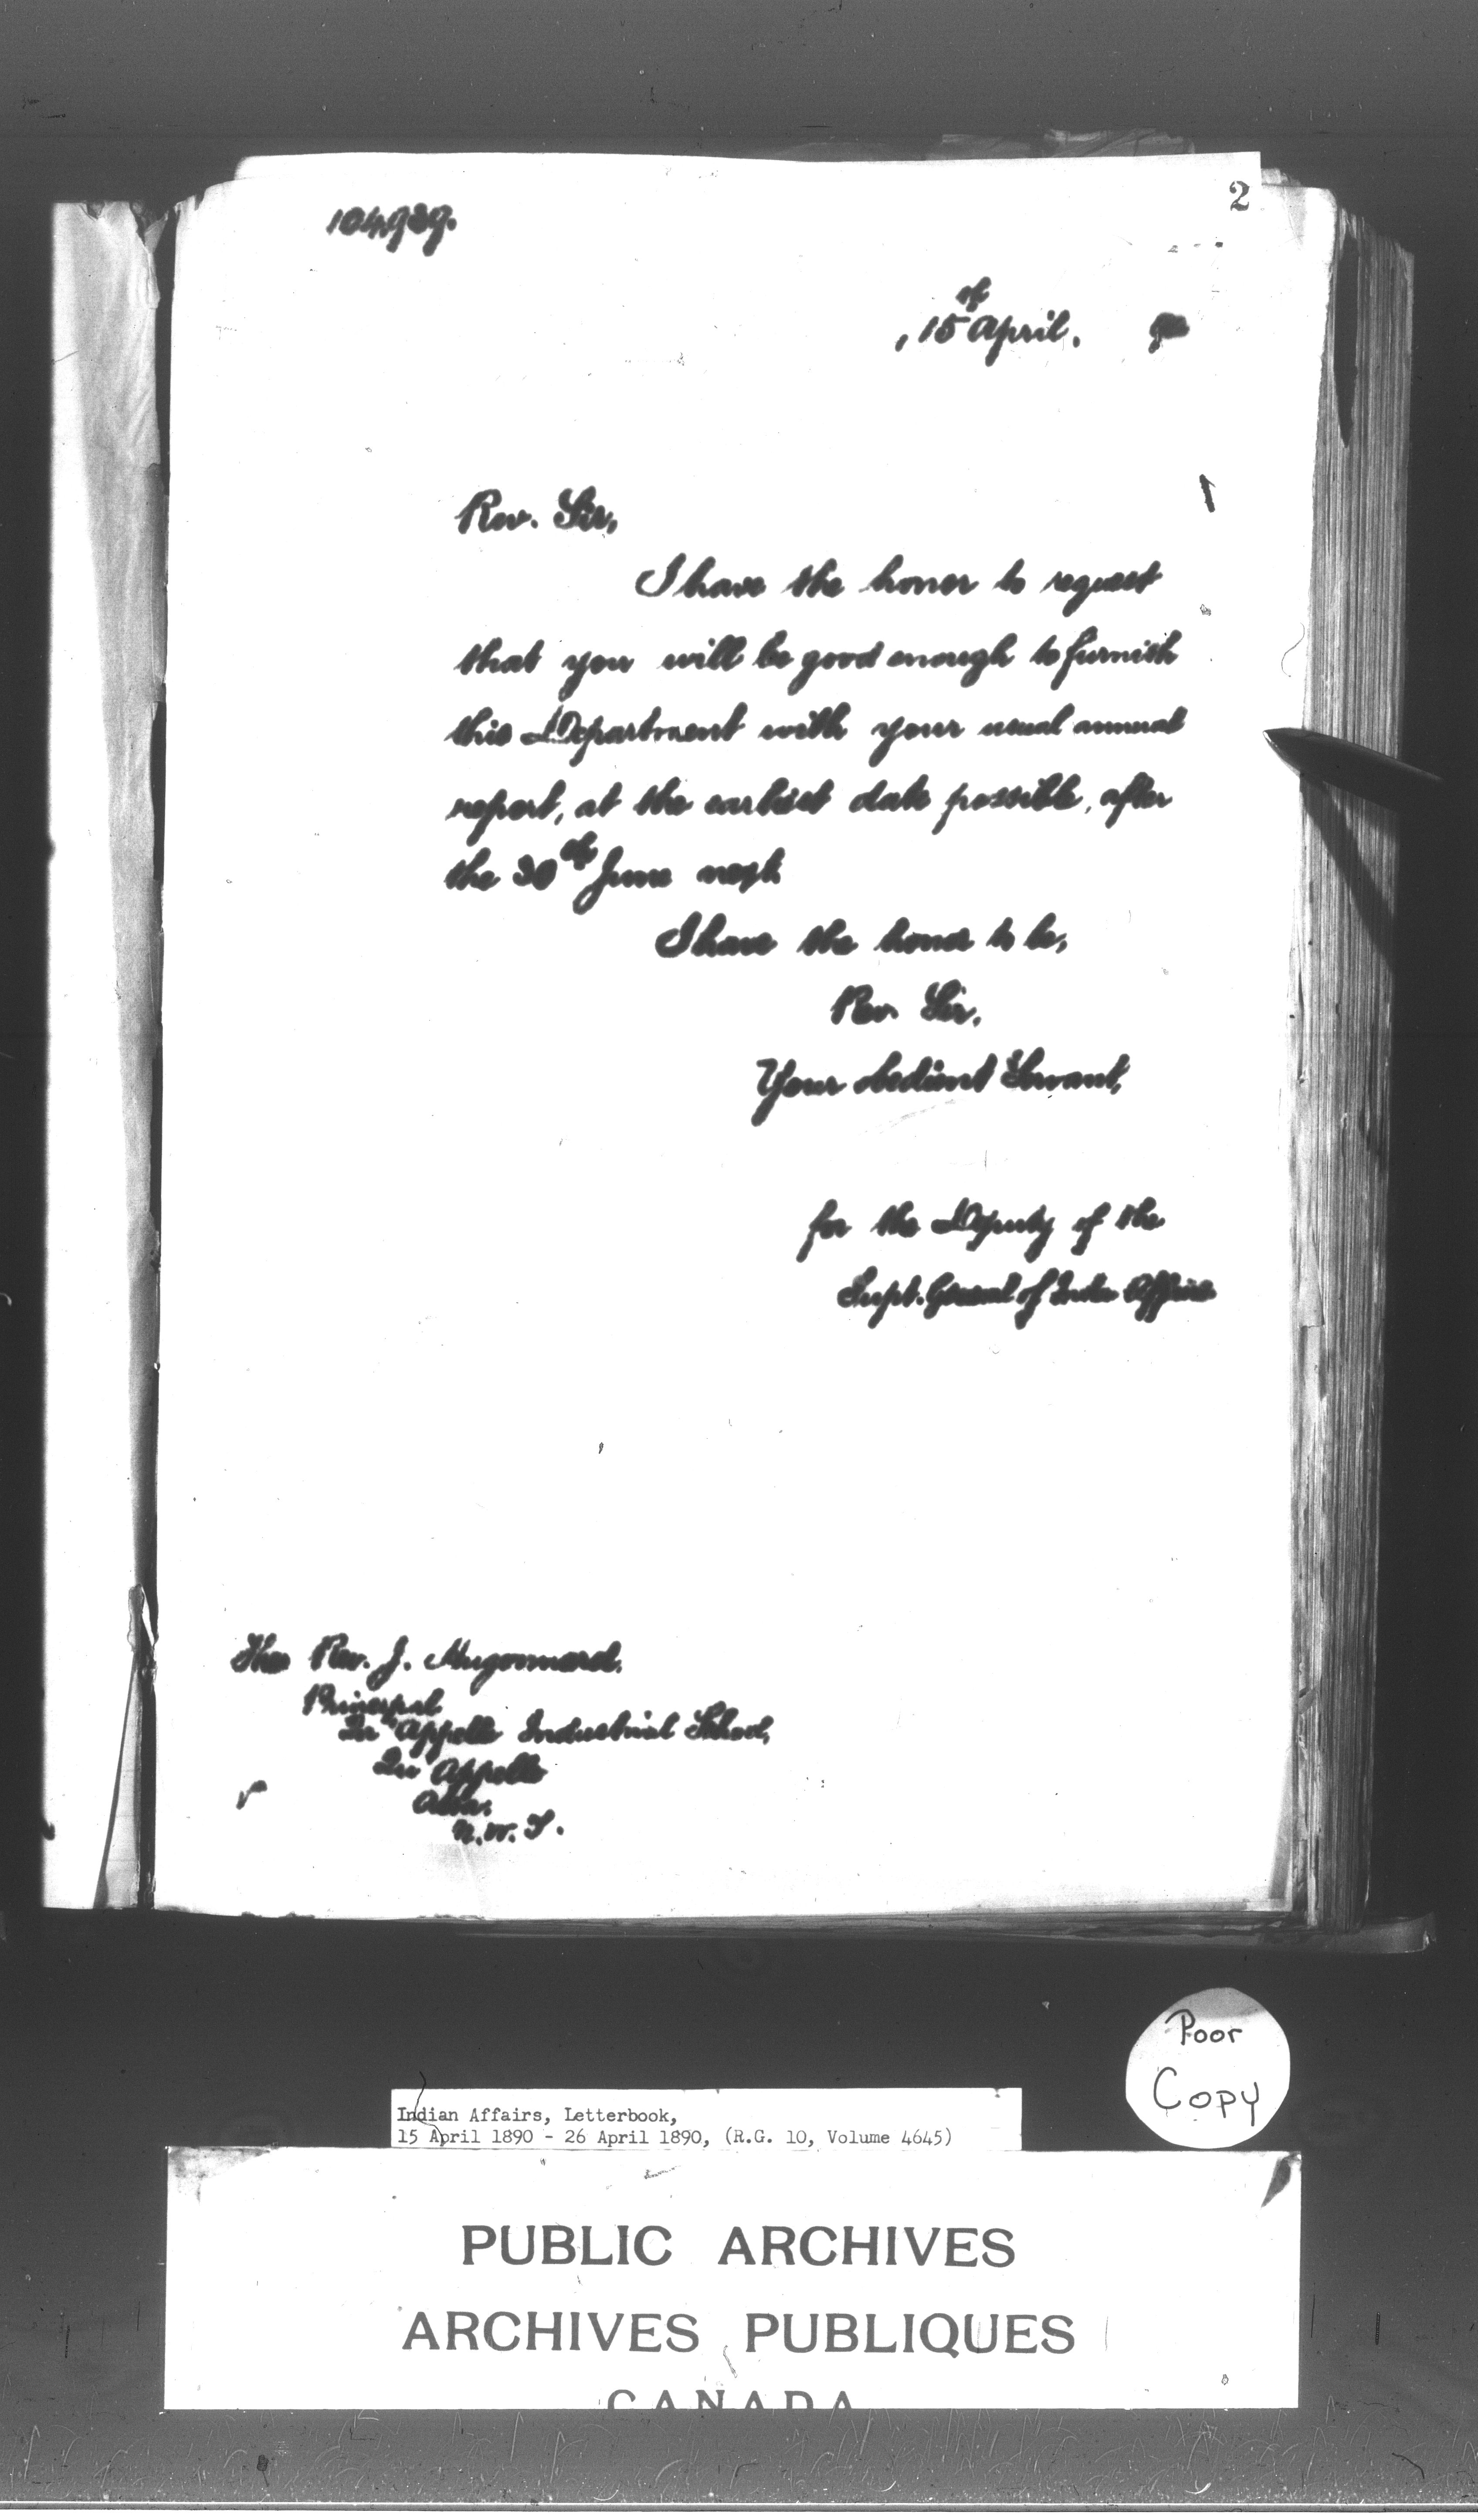 2
104989.
, 15th April. 90
Rev. Sir,
I have the honor to request
that you will be good enough to furnish
this Department with your usual annual
report, at the earliest date possible, after
the 30th June next.
I have the honor to be,
Rev. Sir,
Your obedient Servant,
for the Deputy of the
Supt. General of Indian Affairs
The Rev. J. Hugonnard.
Principal
Qu'Appelle Industrial School,
Qu'Appelle
Assa.
N.W.T.
Poor
Copy
Indian Affairs, Letterbook,
15 April 1890 - 26 April 1890, (R.G. 10, Volume 4645)
PUBLIC ARCHIVES
ARCHIVES PUBLIQUES
CANADA